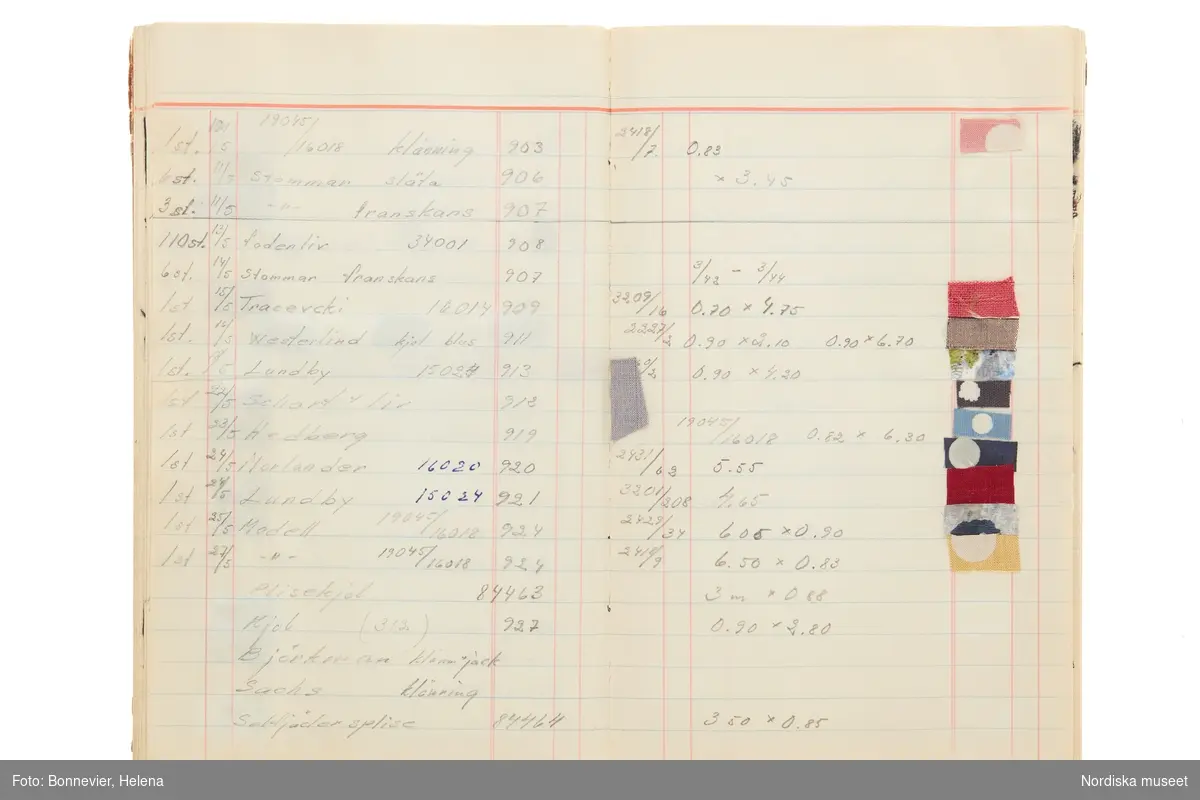 19045/
1st. /5 /16018 klänning 903 2418/7. 0.83
6st. 11/5 Stommar släta 906 × 3.45
3st. 11/5 -"- franskans 907
110st. 13/5 fodenliv 34001 908
6st. 14/5 Stommar franskans 907 3/42 - 3/44
1st 15/5 Tracevcki 16014 909 3209/16 0.70 × 4.75
1st. 16/5 Wederlind kjol blus 911 2327/2 0.90 × 2.10 0.90 × 6.70
1st. /5 Lundby 15024 913 /2 0.90 × 4.20
1st 22/5 liv 912
1st 23/5 Hedberg 919 19045/16018 0.82 × 6.30
1st 24/5 Norlander 16020 920 2431/62 5.55
1st 24/5 Lundby 15024 921 3201/208 4.65
1st 25/5 Modell 19045/16018 924 2429/34 6.05 × 0.90
1st 27/5 -"- 19045/16018 924 2419/9 6.50 × 0.83
Plisekjol 84463 3 m × 0.88
Kjol (312) 927 0.90 × 2.80
Björkman jack
Sachs klänning
84464 3 50 × 0.85
Foto: Bonnevier, Helena Nordiska museet